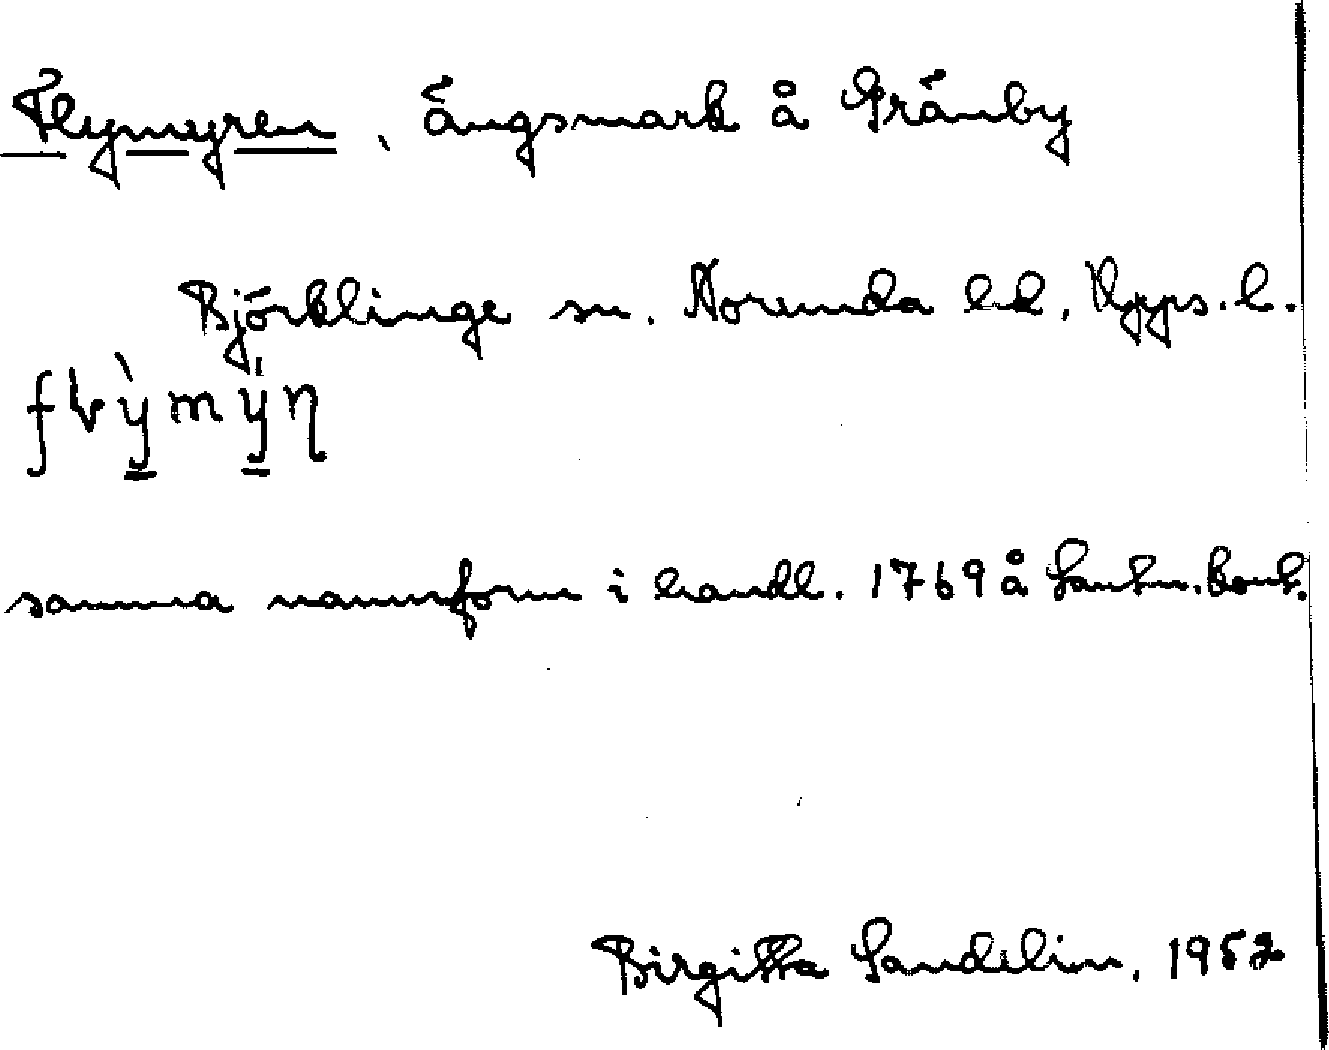 Flymyren, ängsmark å Gränby
Björklinge sn. Norunda hd, Upps. l.
samma namnform i handl. 1769 å Lantm. kont.
Birgitta Sandelin, 1952